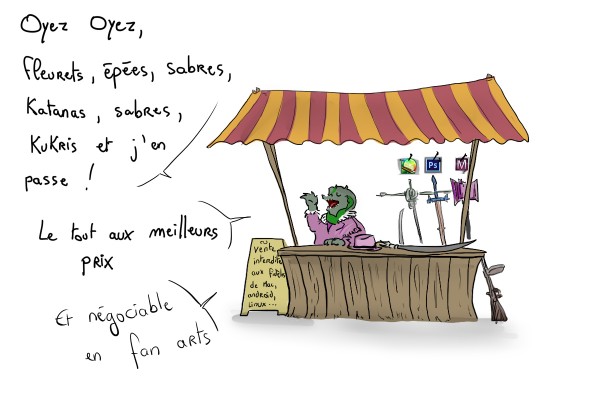 Oyez Oyez,
fleurets, épées, sabres,
Katanas, sabres,
Kukris et j'en
passe !
Le tout aux meilleurs
prix
Et négociable
en fan arts
Vente
interdite
aux
de Mac,
android,
Linux...
Ps
M